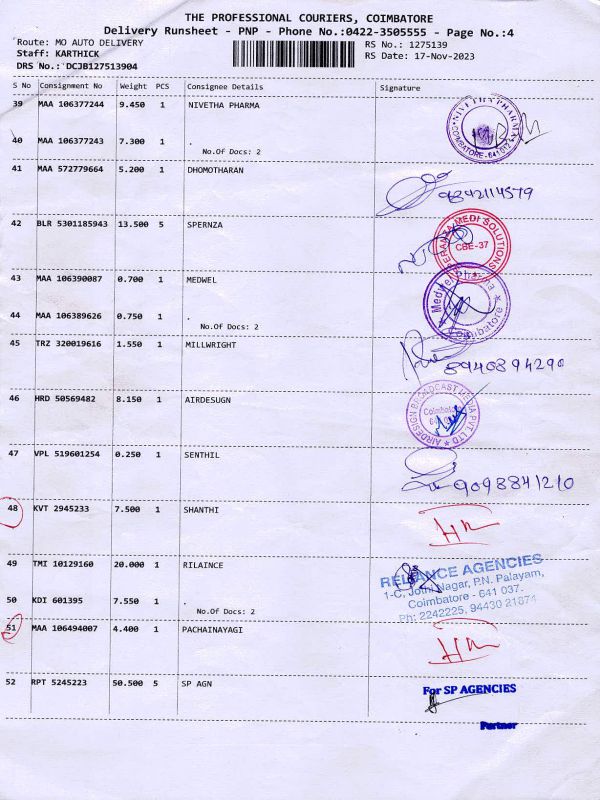 THE PROFESSIONAL COURIERS, COIMBATORE
Delivery Runsheet - PNP - Phone No.:0422-3505555 - Page No.:4
Route: MO AUTO DELIVERY
RS No.: 1275139
Staff: KARTHICK
RS Date: 17-Nov-2023
DRS No.: DCJB127513904
S No Consignment No Weight PCS Consignee Details Signature
39 MAA 106377244 9.450 1 NIVETHA PHARMA
NIVETHA PHARMA COIMBATORE - 641 012
40 MAA 106377243 7.300 1 .
No.Of Docs: 2
41 MAA 572779664 5.200 1 DHOMOTHARAN
9842114579
42 BLR 5301185943 13.500 5 SPERNZA
MEDI SOLUTIONS CBE-37
43 MAA 106390087 0.700 1 MEDWEL
Coimbatore
44 MAA 106389626 0.750 1 .
No.Of Docs: 2
45 TRZ 320019616 1.550 1 MILLWRIGHT
8940894290
46 HRD 50569482 8.150 1 AIRDESUGN
AIRDESIGN BROADCAST MEDIA PVT. LTD
47 VPL 519601254 0.250 1 SENTHIL
9098841210
48 KVT 2945233 7.500 1 SHANTHI
49 TMI 10129160 20.000 1 RILAINCE
RELIANCE AGENCIES
1-C, Jothi Nagar, P.N. Palayam,
Coimbatore - 641 037.
Ph: 2242225, 94430 21874
50 KDI 601395 7.550 1 .
No.Of Docs: 2
51 MAA 106494007 4.400 1 PACHAINAYAGI
52 RPT 5245223 50.500 5 SP AGN
For SP AGENCIES
Partner